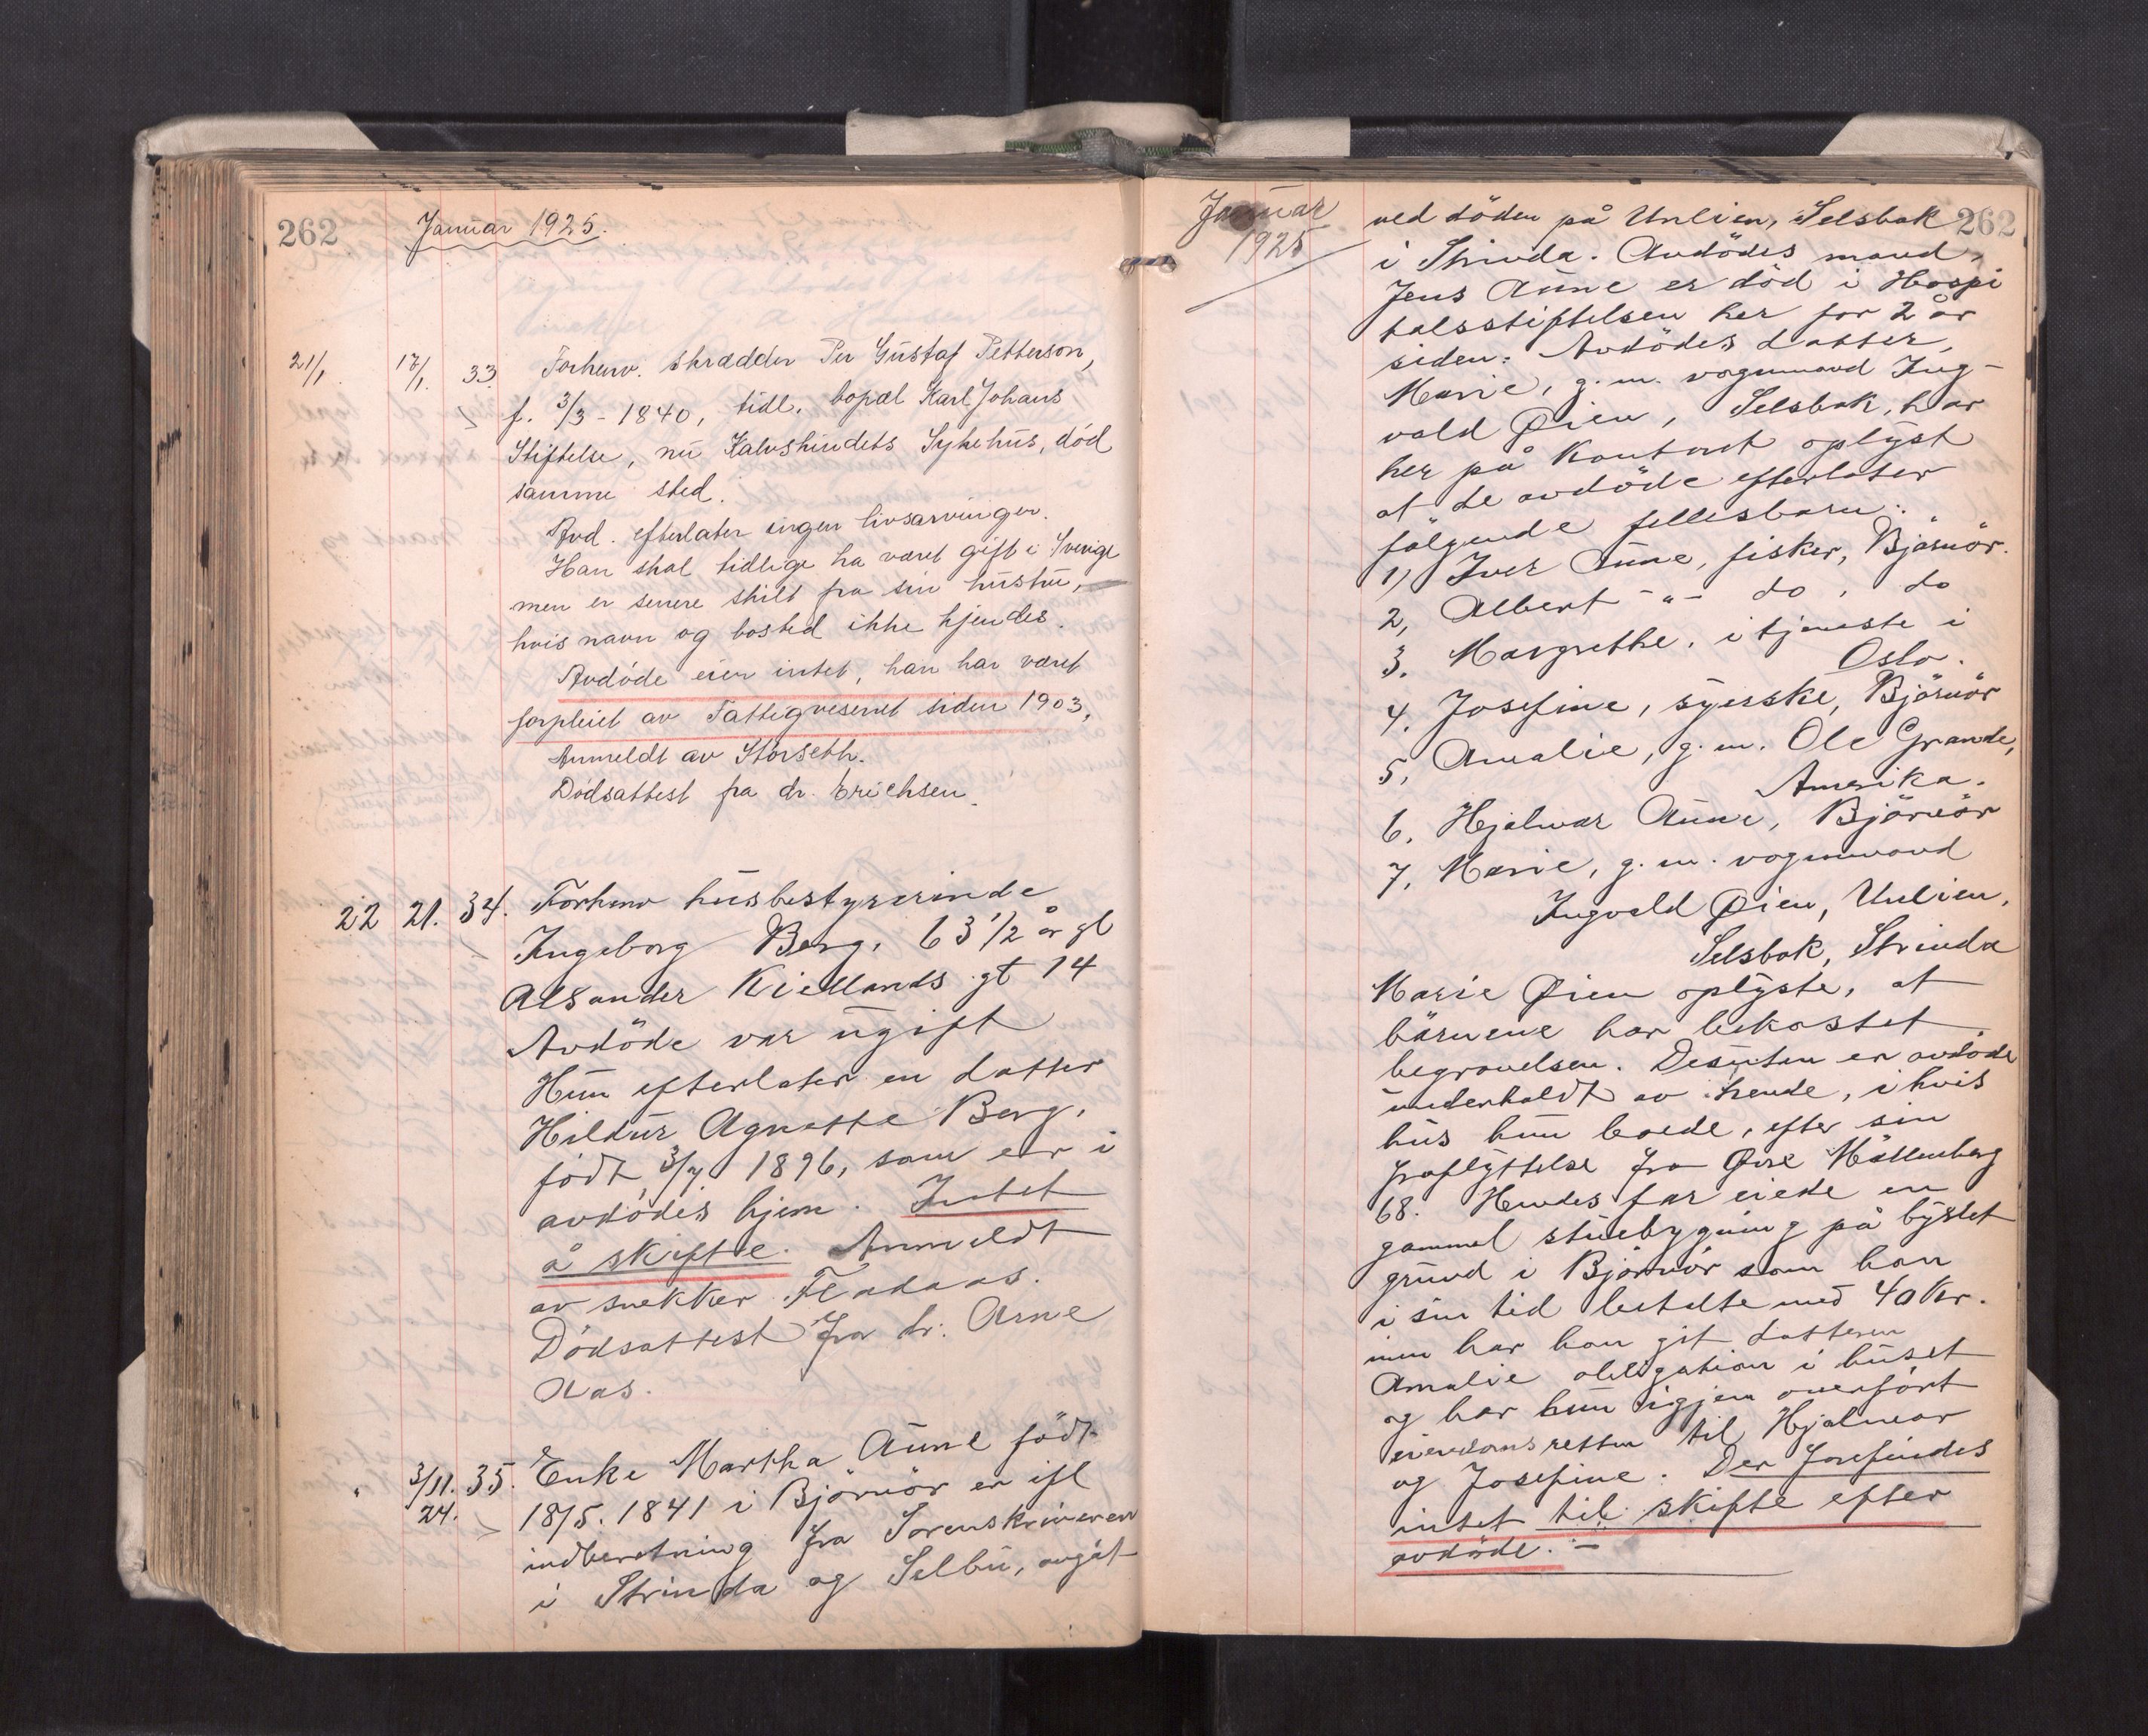 262 Januar 1925.
21/1. 17/1. 33 Forhenv. skrædder Per Gustaf Petterson,
f. 3/3 - 1840, tidl. bopæl Karl Johans
Stiftelse, nu Kalvskindets Sykehus, död
samme sted.
Avd. efterlater ingen livsarvinger.
Han skal tidlige ha været gift i Sverige
men er senere skilt fra sin hustru,
hvis navn og bosted ikke kjendes.
Avdöde eier intet, han har været
forpleiet av Fattigvesenet siden 1903.
Anmeldt av Storseth.
Dödsattest fra dr. Erichsen.
22 21. 34. Forhenv husbestyrerinde
Ingeborg Berg, 63 1/2 år gl
Alsander Kiellands gt 14
Avdöde var ugift
Hun efterlater en datter
Hildur Agnette Berg,
födt 3/7 1896, som er i
avdödes hjem. Intet
å skifte. Anmeldt
av snekker Fladaas.
Dödsattest fra dr. Arne
Aas.
" 3/11. 35. Enke Martha Aune födt
24. 18/5. 1841 i Björnör er ifl
indberetning fra Sorenskriveren
i Strinda og Selbu, avgåt
Januar
1925
262
ved döden på Unlien, Selsbak
i Strinda. Avdödes mand,
Jens Aune er död i Hospi
talsstiftelsen her for 2 år
siden. Avdödes datter,
Marie, g.m. vognmand Ing-
vald Øien, Selsbak, har
her på Kontoret oplyst
at de avdöde efterlater
fölgende fellesbarn:
1) Iver Aune, fisker, Björnör.
2, Albert -"- do, do
3. Margrethe, i tjeneste i
Oslo.
4. Josefine, syerske, Björnör
5, Amalie, g.m. Ole Grande,
Amerika.
6, Hjalmar Aune, Björnör
7, Marie, g.m. vognmand
Ingvald Øien, Unlien,
Selsbak, Strinda
Marie Øien oplyste, at
barnene har bekostet
begravelsen. Desuten er avdöde
underholdt av hende, i hvis
hus hun boede, efter sin
fraflyttelse fra Øvre Möllenberg
68. Hendes far eiede en
gammel stuebygning på bygslet
grund i Björnör som han
i sin tid betalte med 40 Kr.
men har han git datteren
Amalie obligation i huset
og har hun igjen overfört
eiendomsretten til Hjalmar
og Josefine. Der forefindes
intet til skifte efter
avdöde. -